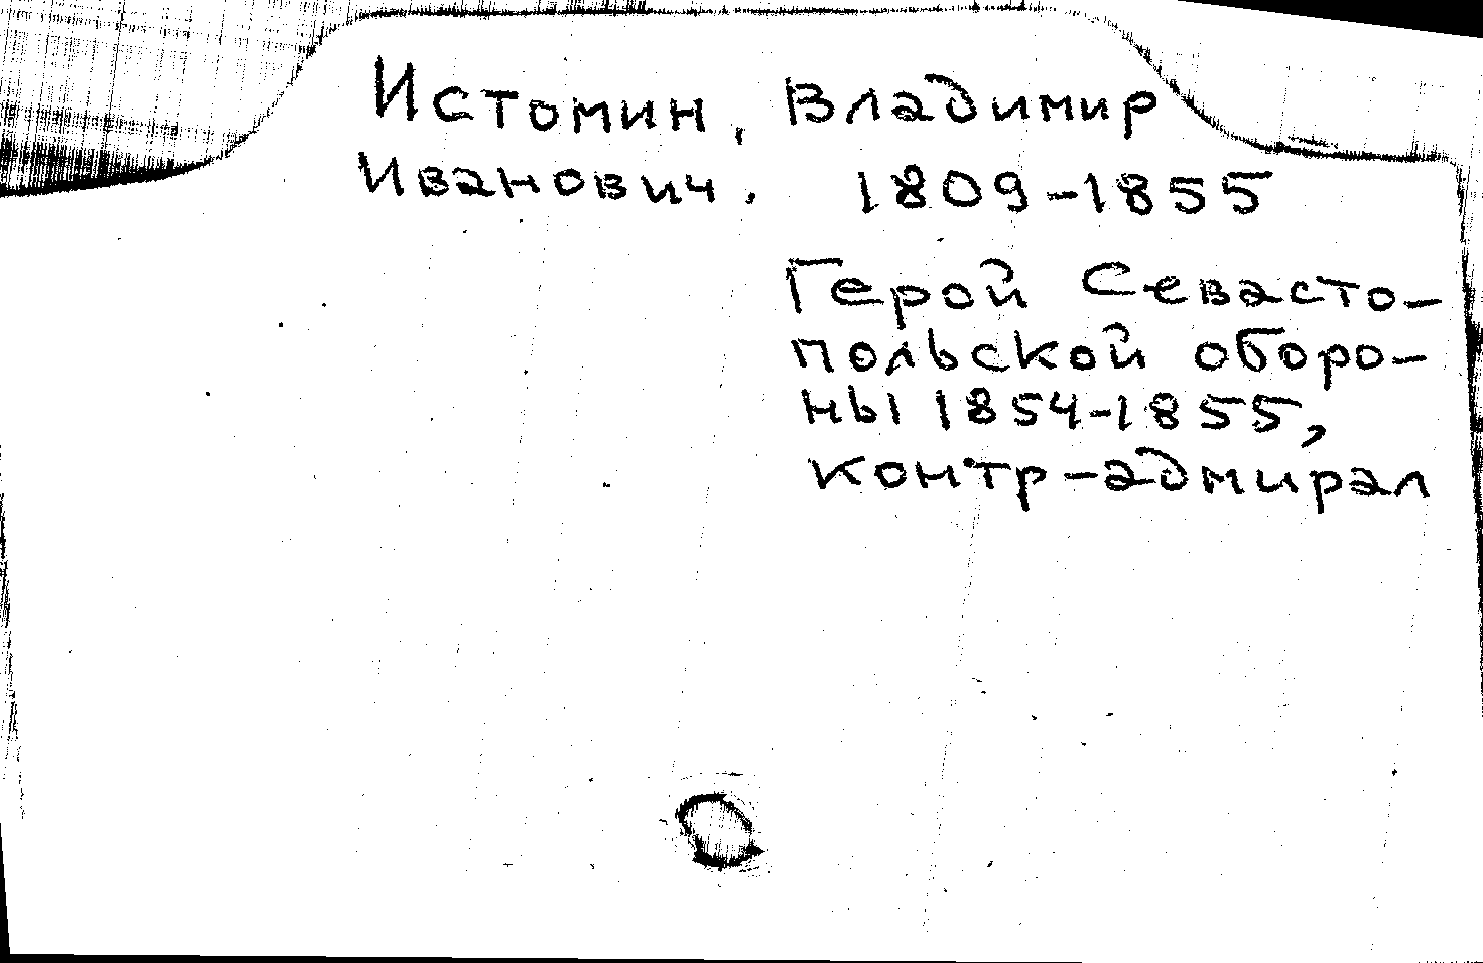 Истомин, Владимир
Иванович. 1809-1855
Герой Севасто-
польской оборо-
ны 1854-1855,
контр-адмирал